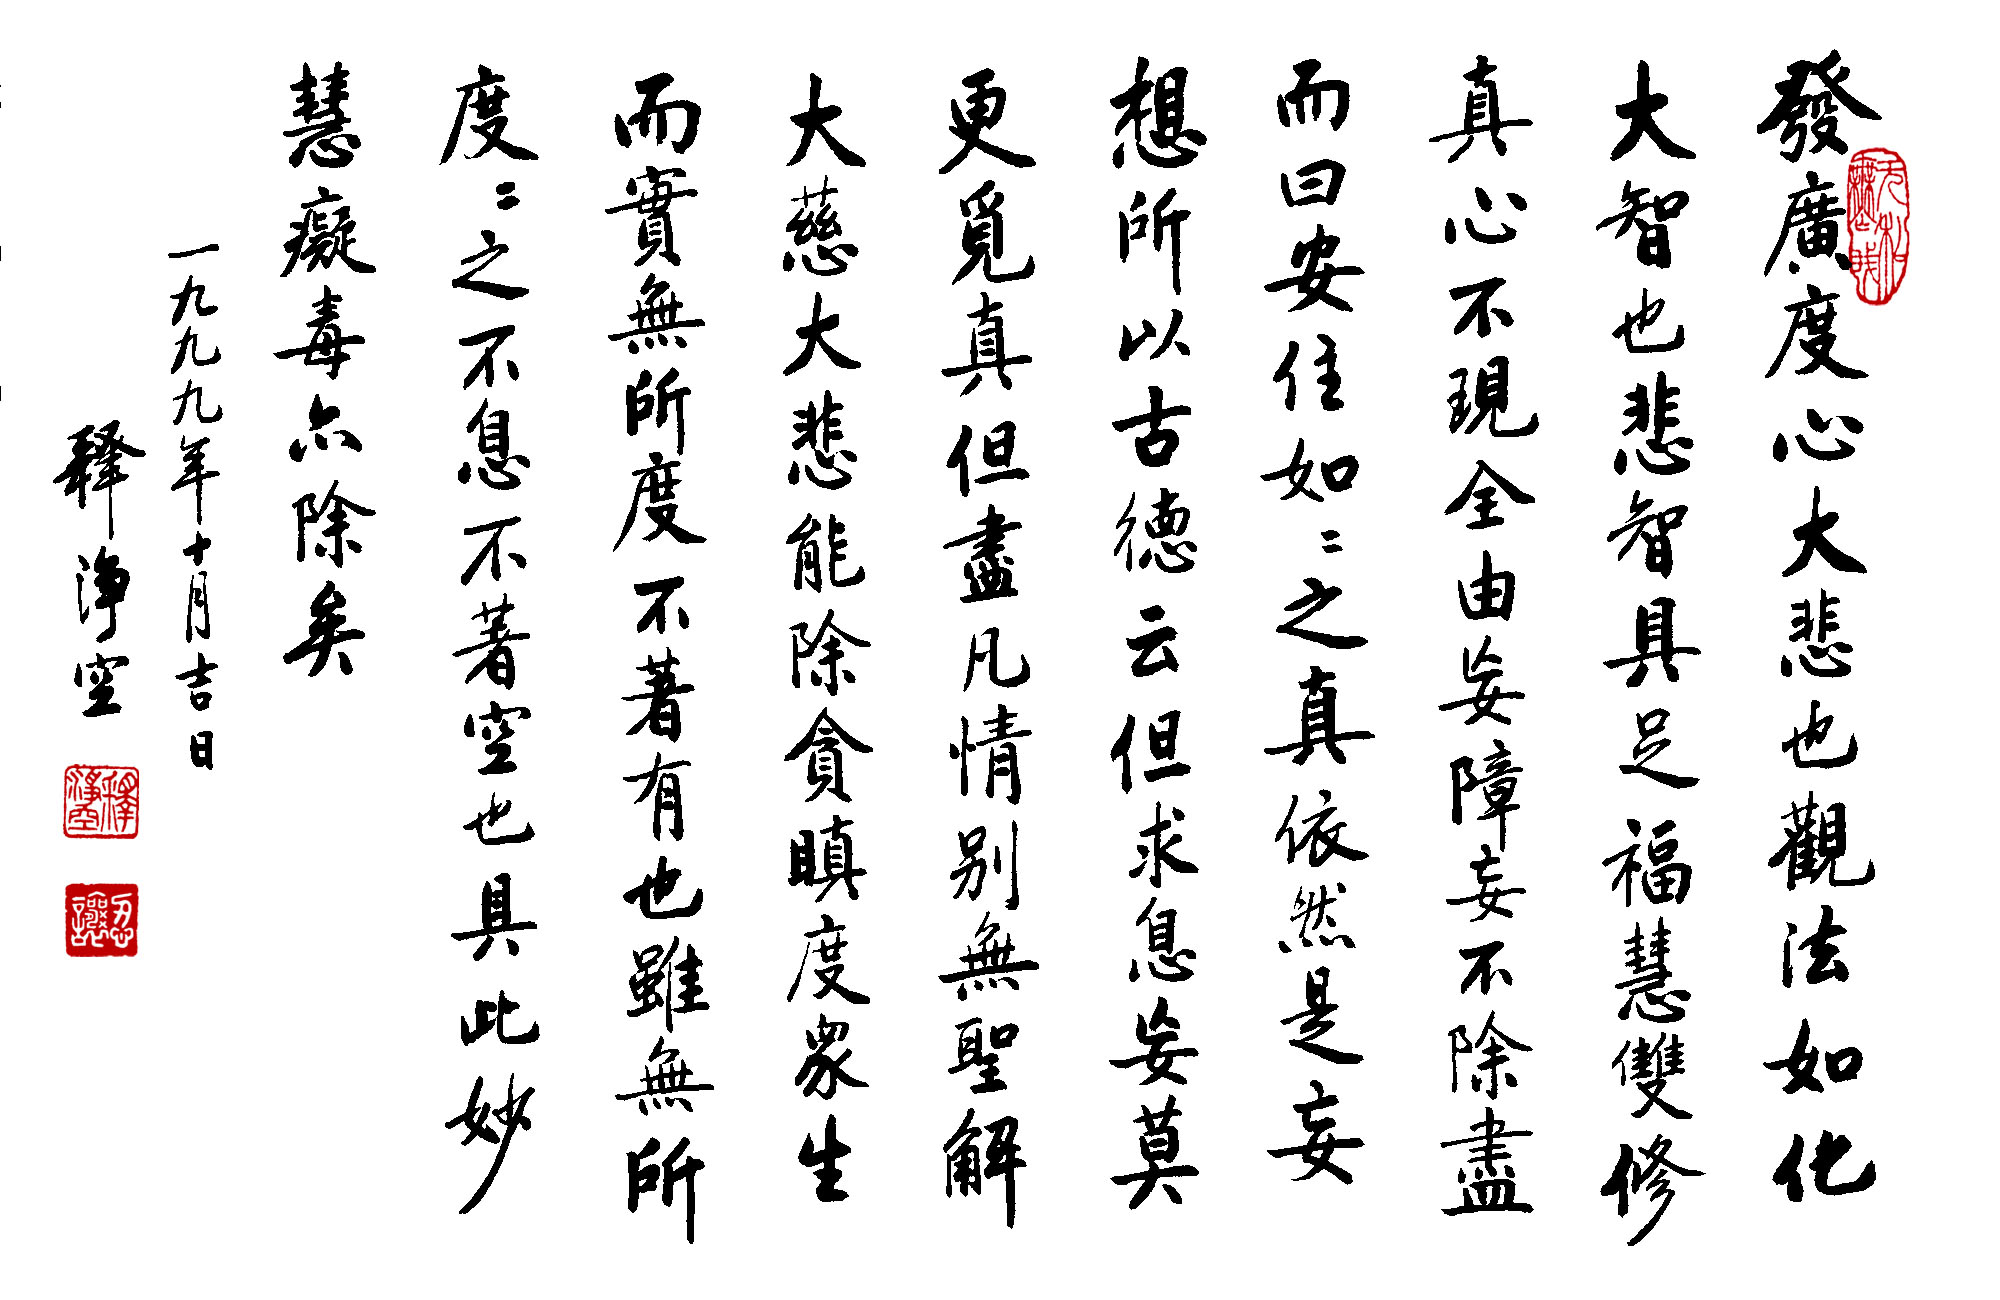 發廣度心大悲也觀法如化
大智也悲智具足福慧雙修
真心不現全由妄障妄不除盡
而曰安住如〻之真依然是妄
想所以古德云但求息妄莫
更覓真但盡凡情別無聖解
大慈大悲能除貪瞋度眾生
而實無所度不著有也雖無所
度〻之不息不著空也具此妙
慧癡毒亦除矣
一九九九年十月吉日
釋淨空
釋淨空